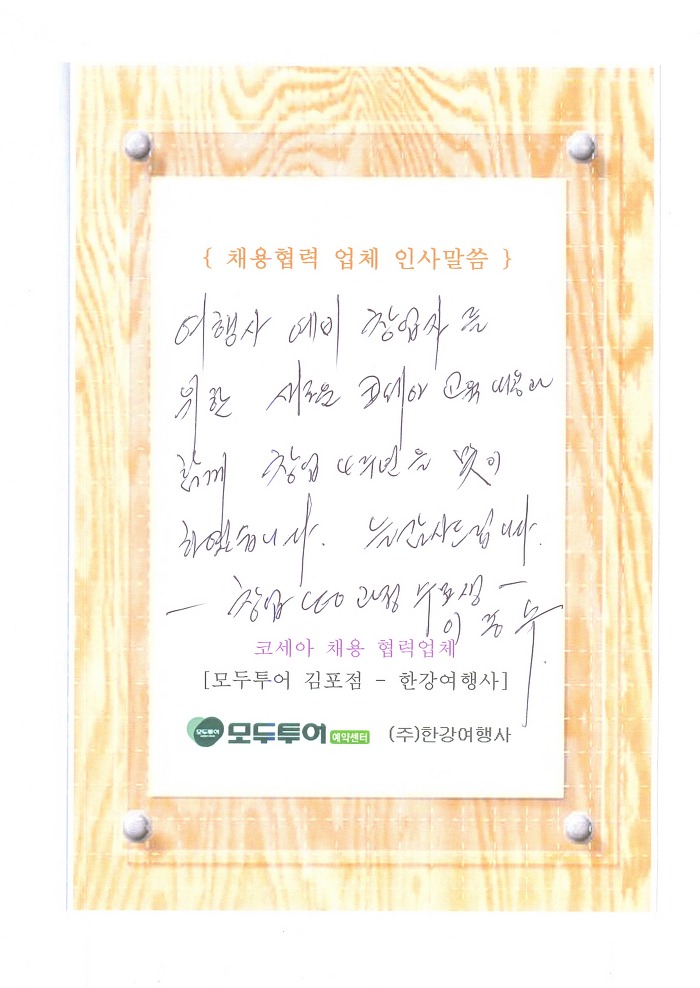 { 채용협력 업체 인사말씀 }
여행사 예비 창업자들
위한 새로운 코세아 교육 내용과
함께 창업 4주년을 맞이
하였습니다. 늘 감사드립니다.
— 창업 CEO 과정 수료생 —
이 종
코세아 채용 협력업체
[모두투어 김포점 - 한강여행사]
모두투어 모두투어 예약센터 (주)한강여행사